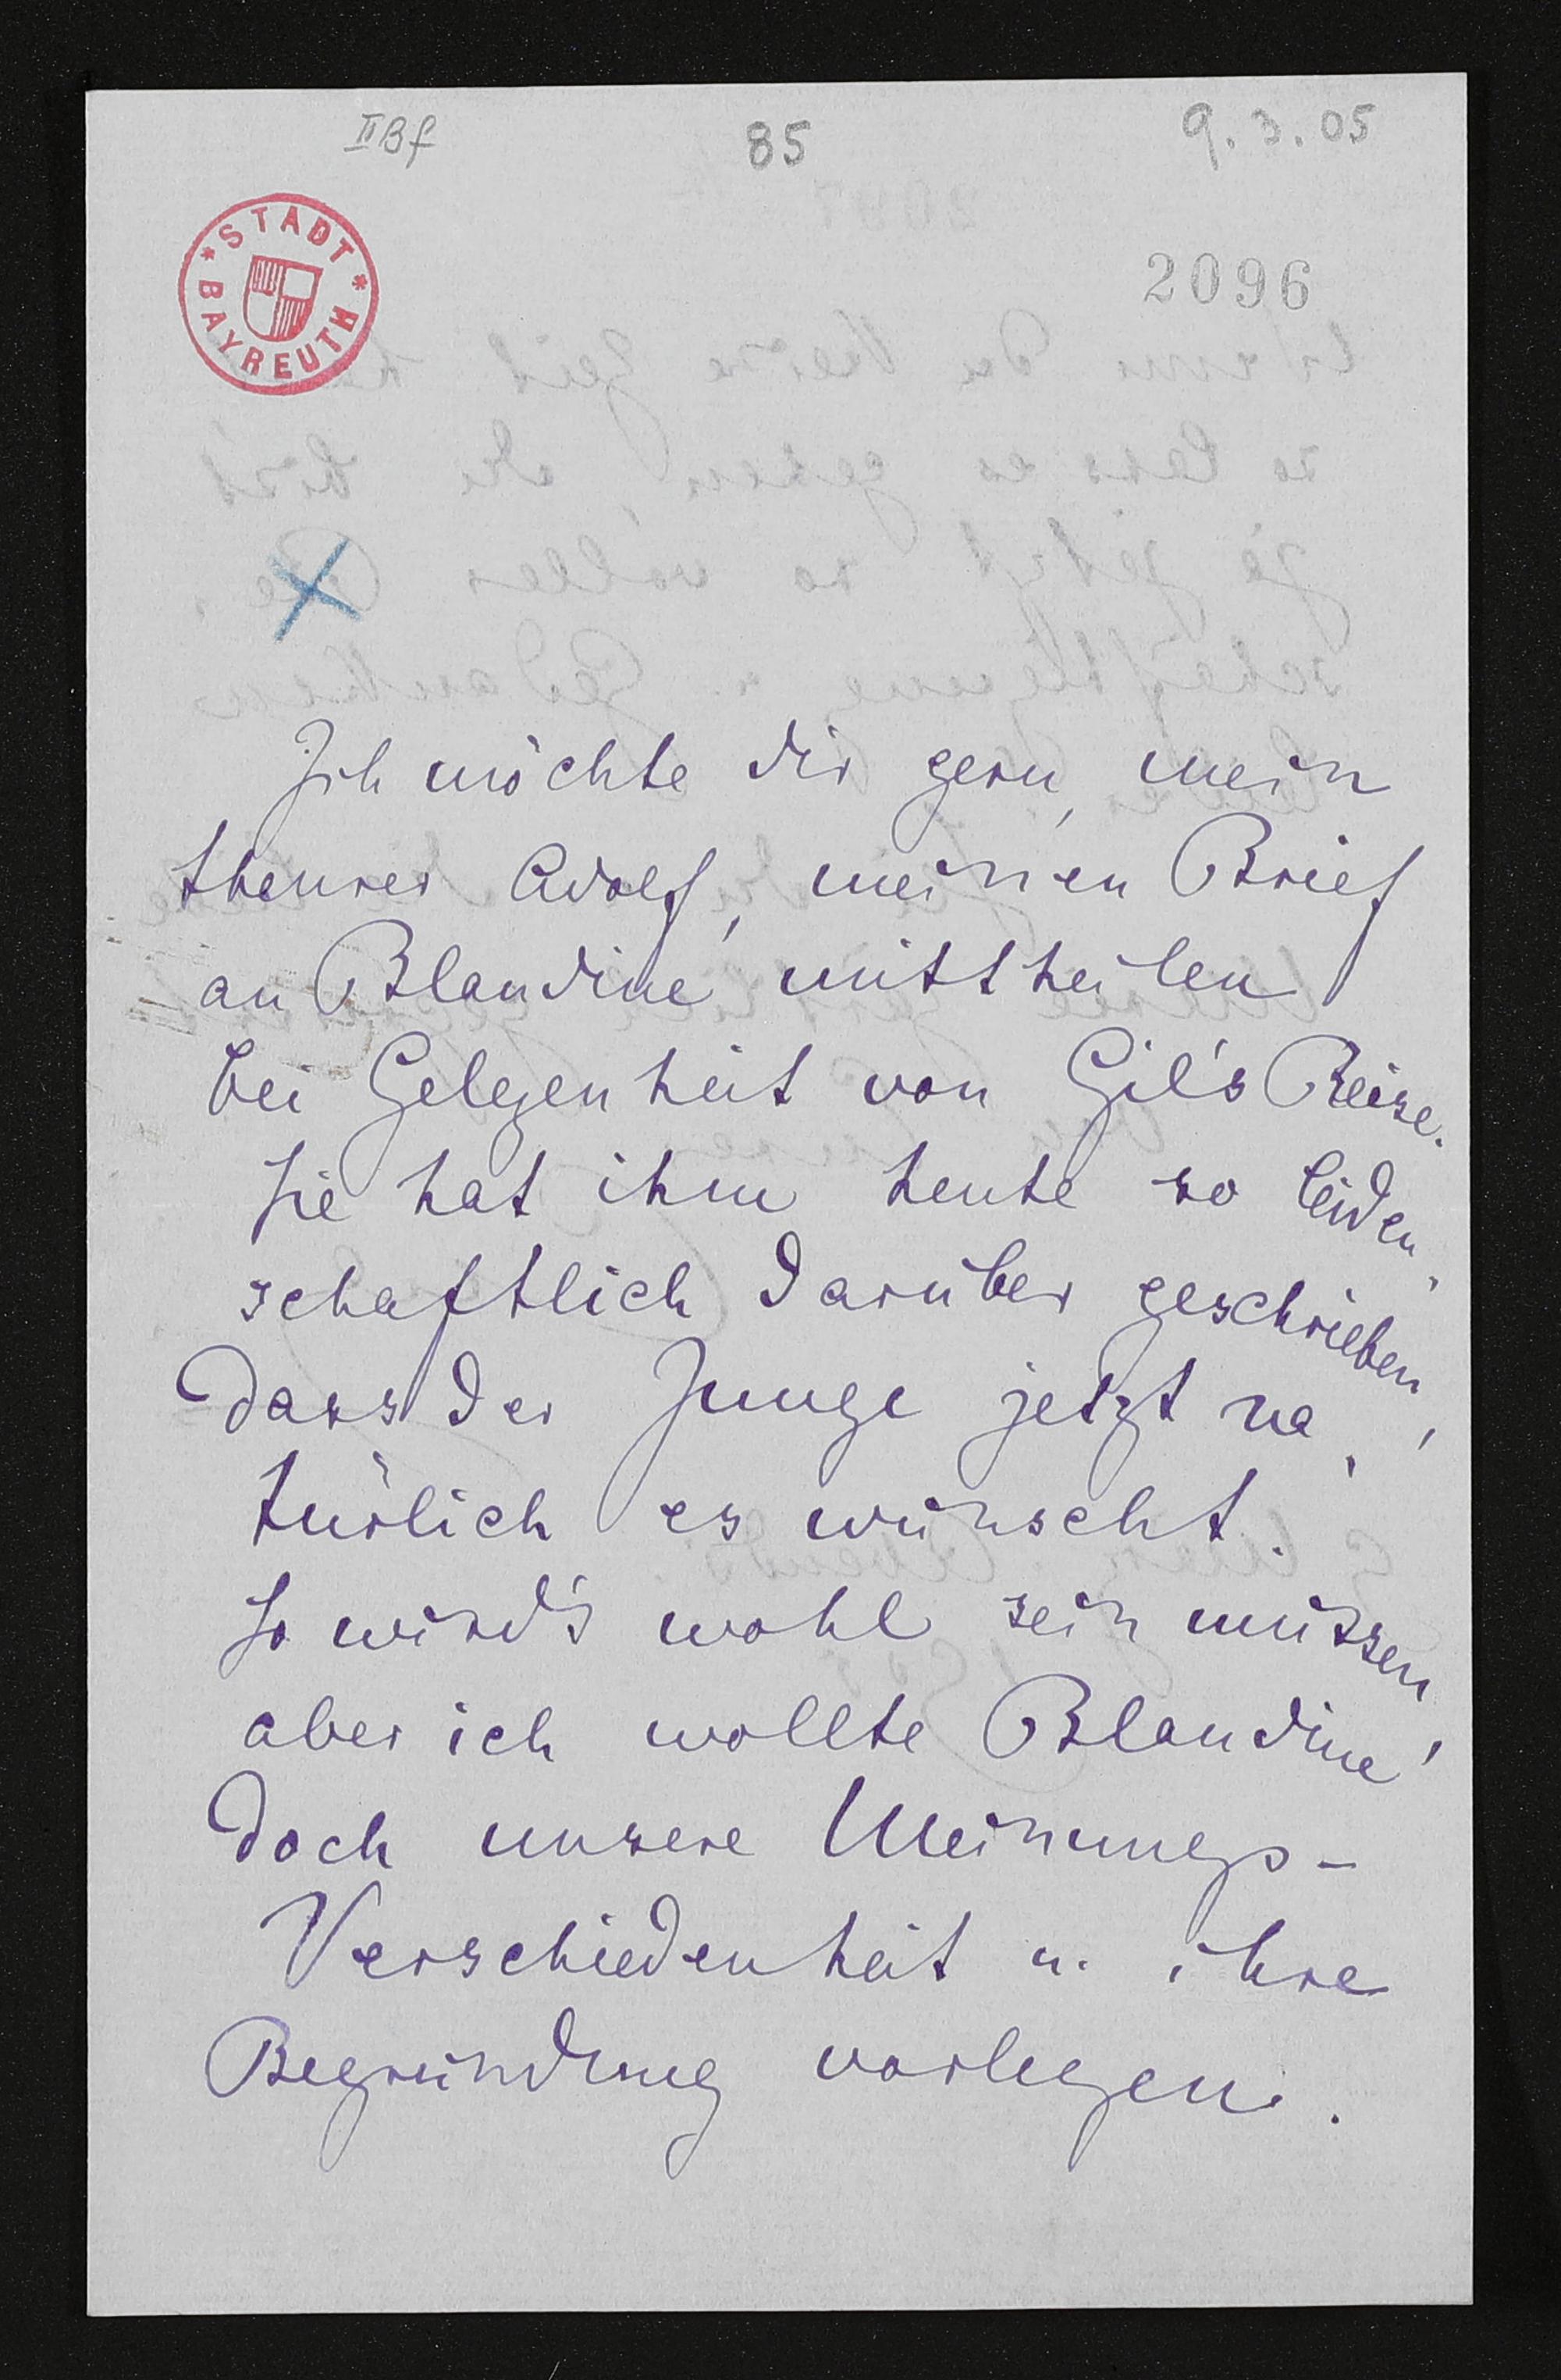 IIBf 85 9.3.05
STADT BAYREUTH
2096
Ich möchte dir gern, mein
theurer Adolf, meinen Brief
an Blandine mittheilen
bei Gelegenheit von Gil's Reise.
Sie hat ihm heute so leiden,
schaftlich darüber geschrieben,
dass der Junge jetzt na,
türlich es wünscht.
So wird's wohl sein müssen,
aber ich wollte Blandine
doch unsere Meinungs-
Verschiedenheit u. ihre
Begründung vorlegen.